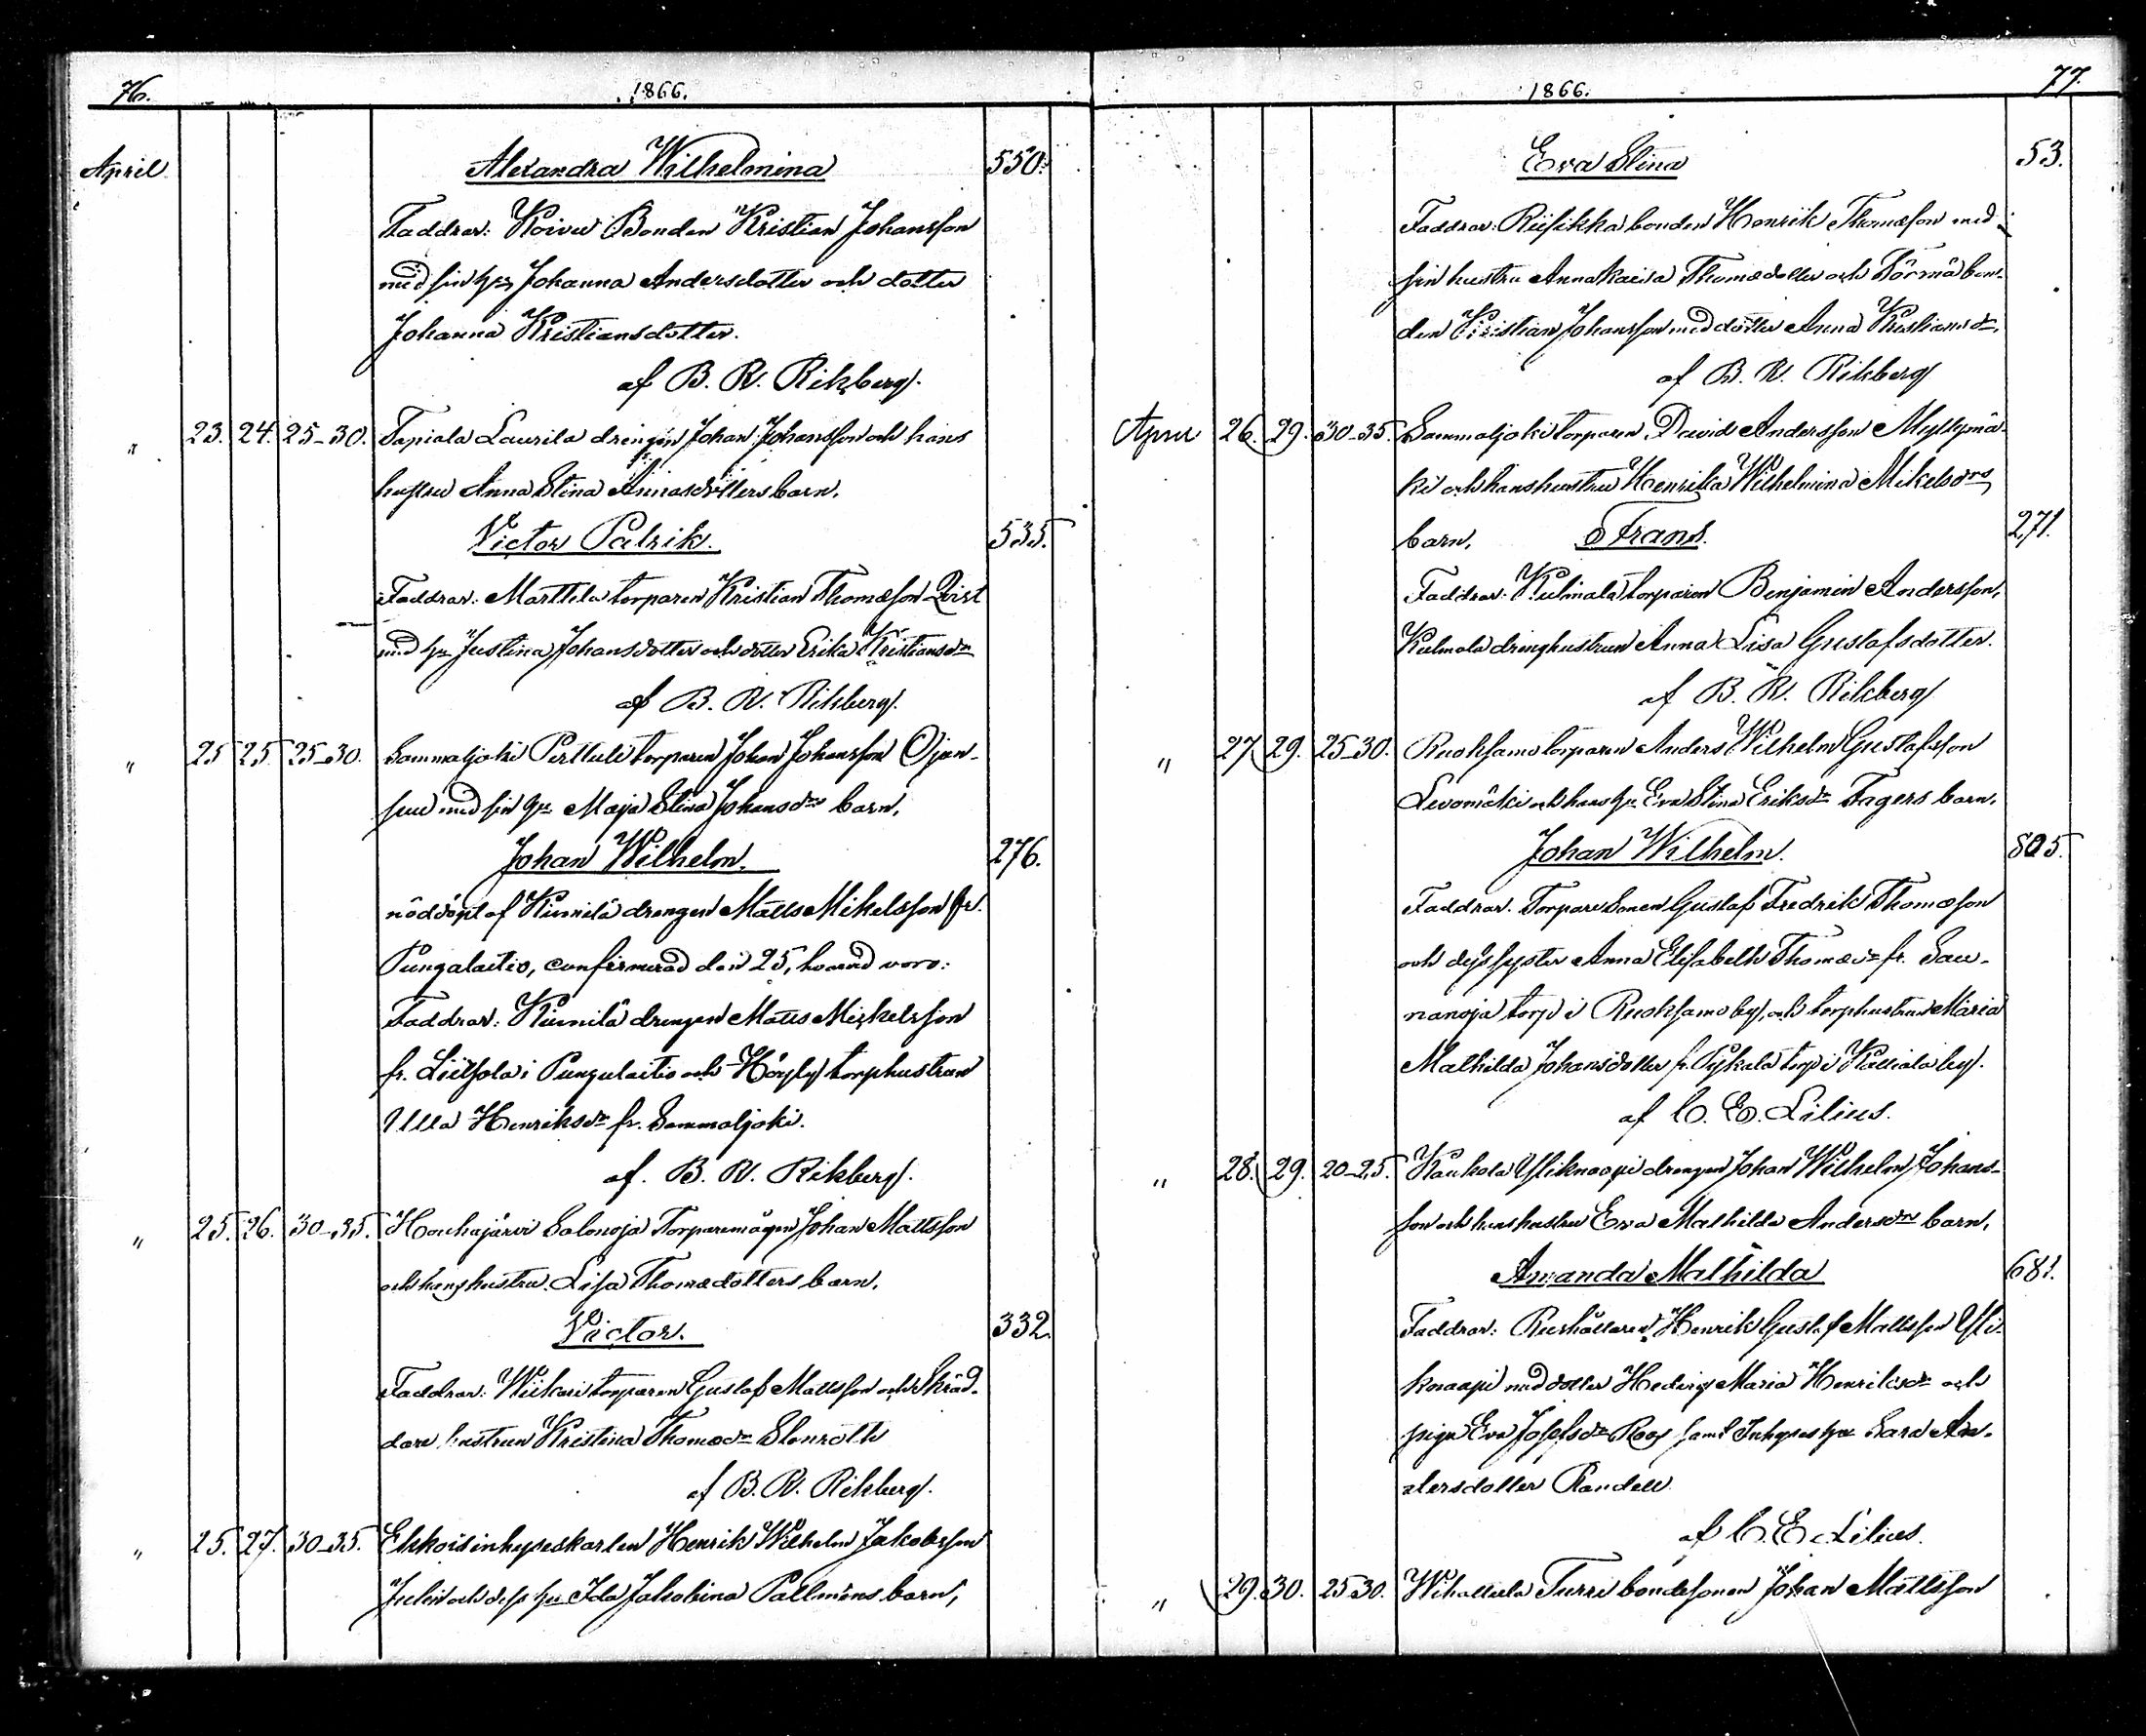 76.
1866.
April
Alexandra Wilhelmina 550.
Faddrar: Koivu Bonden Kristian Johansson
med sin hu Johanna Andersdotter och dotter
Johanna Kristiansdotter.
af B. R. Rikberg.
" 23. 24. 25-30. Tapiala Laurila drengen Johan Johansson och hans
hustru Anna Stina Annasdotters barn,
Victor Patrik. 535.
Faddrar: Marttila torparen Kristian Thomasson Qvist
med hu Justina Johansdotter och dotter Erika Kristiansdr
af B. R. Rikberg.
" 25 25. 25-30. Sammaljoki Perttuli torparen Johan Johansson Ojan-
suu med sin hu Maja Stina Johansdrs barn,
Johan Wilhelm. 276.
nöddöpt af Kiimilä drengen Matts Mikelsson fr.
Pungalaitio, confirmerad den 25, hvarvid voro:
Faddrar: Kiimilä drengen Matts Mickelsson
fr. Liitsola i Pungalaitio och Höyly torphustrun
Ulla Henriksdr fr. Sammaljoki.
af. B. R. Rikberg.
" 25. 26. 30-35. Houhajärvi Salonoja Torparemågen Johan Mattsson
och hans hustru Lisa Thomædotters barn,
Victor. 332.
Faddrar: Wiikari torparen Gustaf Mattsson och Skräd-
dare hustrun Kristina Thomædr Stenroth
af B. R. Rikberg.
" 25. 27. 30-35. Ekkois inhyseskarlen Henrik Wilhelm Jakobsson
Julin och dess hu Ida Jakobina Pallmëns barn,
1866. 77.
Eva Stina 53.
Faddrar: Riisikka bonden Henrik Thomasson med
sin hustru Anna Kaisa Thomædotter och Törmä bon-
den Kristian Johansson med dotter Anna Kristiansdr.
af B. R. Rikberg
April 26. 29. 30-35. Sammaljoki torparen David Andersson Myllymä-
ki och hans hustru Henrika Wilhelmina Mikelsdrs
barn, Frans. 271.
Faddrar: Kulmala torparen Benjamin Andersson,
Kulmala drenghustrun Anna Lisa Gustafsdotter.
af B. R. Rikberg
" 27 29. 25-30. Ruoksamo torparen Anders Wilhelm Gustafsson
Levomäki och hans hu Eva Stina Eriksdr Fagers barn,
Johan Wilhelm. 805.
Faddrar. Torpare Sonen Gustaf Fredrik Thomasson
och dess syster Anna Elisabeth Thomædr fr. Sau-
nanoja torp i Ruoksamo by, och torphustrun Maria
Mathilda Johansdotter fr. Pykala torp i Kalliala by.
af C. E. Lilius.
" 28. 29. 20-25. Kaukola Yliknaapi drengen Johan Wilhelm Johans-
son och hans hustru Eva Mathilda Andersdrs barn,
Amanda Mathilda 681.
Faddrar: Rusthållaren Henrik Gustaf Mattsson Yli-
knaapi med dotter Hedvig Maria Henriksdr och
pigan Eva Josefsdr Roos samt Inhyses hu Sara An-
dersdotter Randell
af C. E. Lilius.
" 29. 30. 25-30. Wihattula Turri bondesonen Johan Mattsson